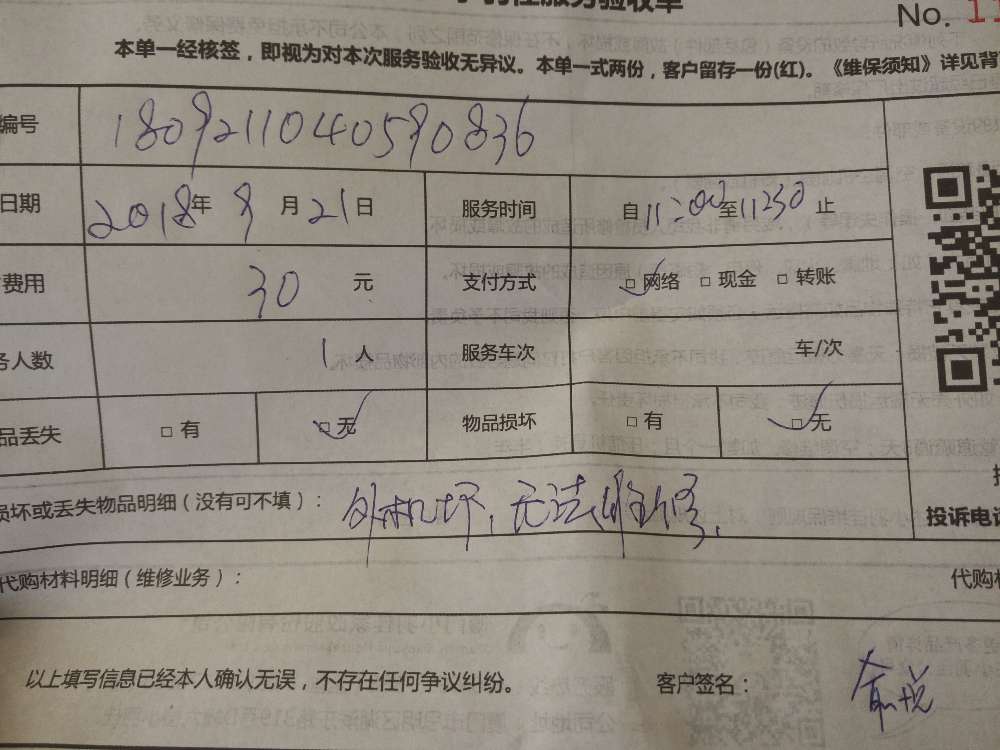 服务验收单
No. 1
本单一经核签，即视为对本次服务验收无异议。本单一式两份，客户留存一份(红)。《维保须知》详见背
编号 1809211040590836
日期 2018年 9月 21日 服务时间 自11:00至11:30止
费用 30 元 支付方式 □网络 □现金 □转账
务人数 1人 服务车次 车/次
品丢失 □有 □无 物品损坏 □有 □无
损坏或丢失物品明细（没有可不填）： 外机坏，无法维修。
投诉电话
代购材料明细（维修业务）： 代购材
以上填写信息已经本人确认无误，不存在任何争议纠纷。 客户签名：